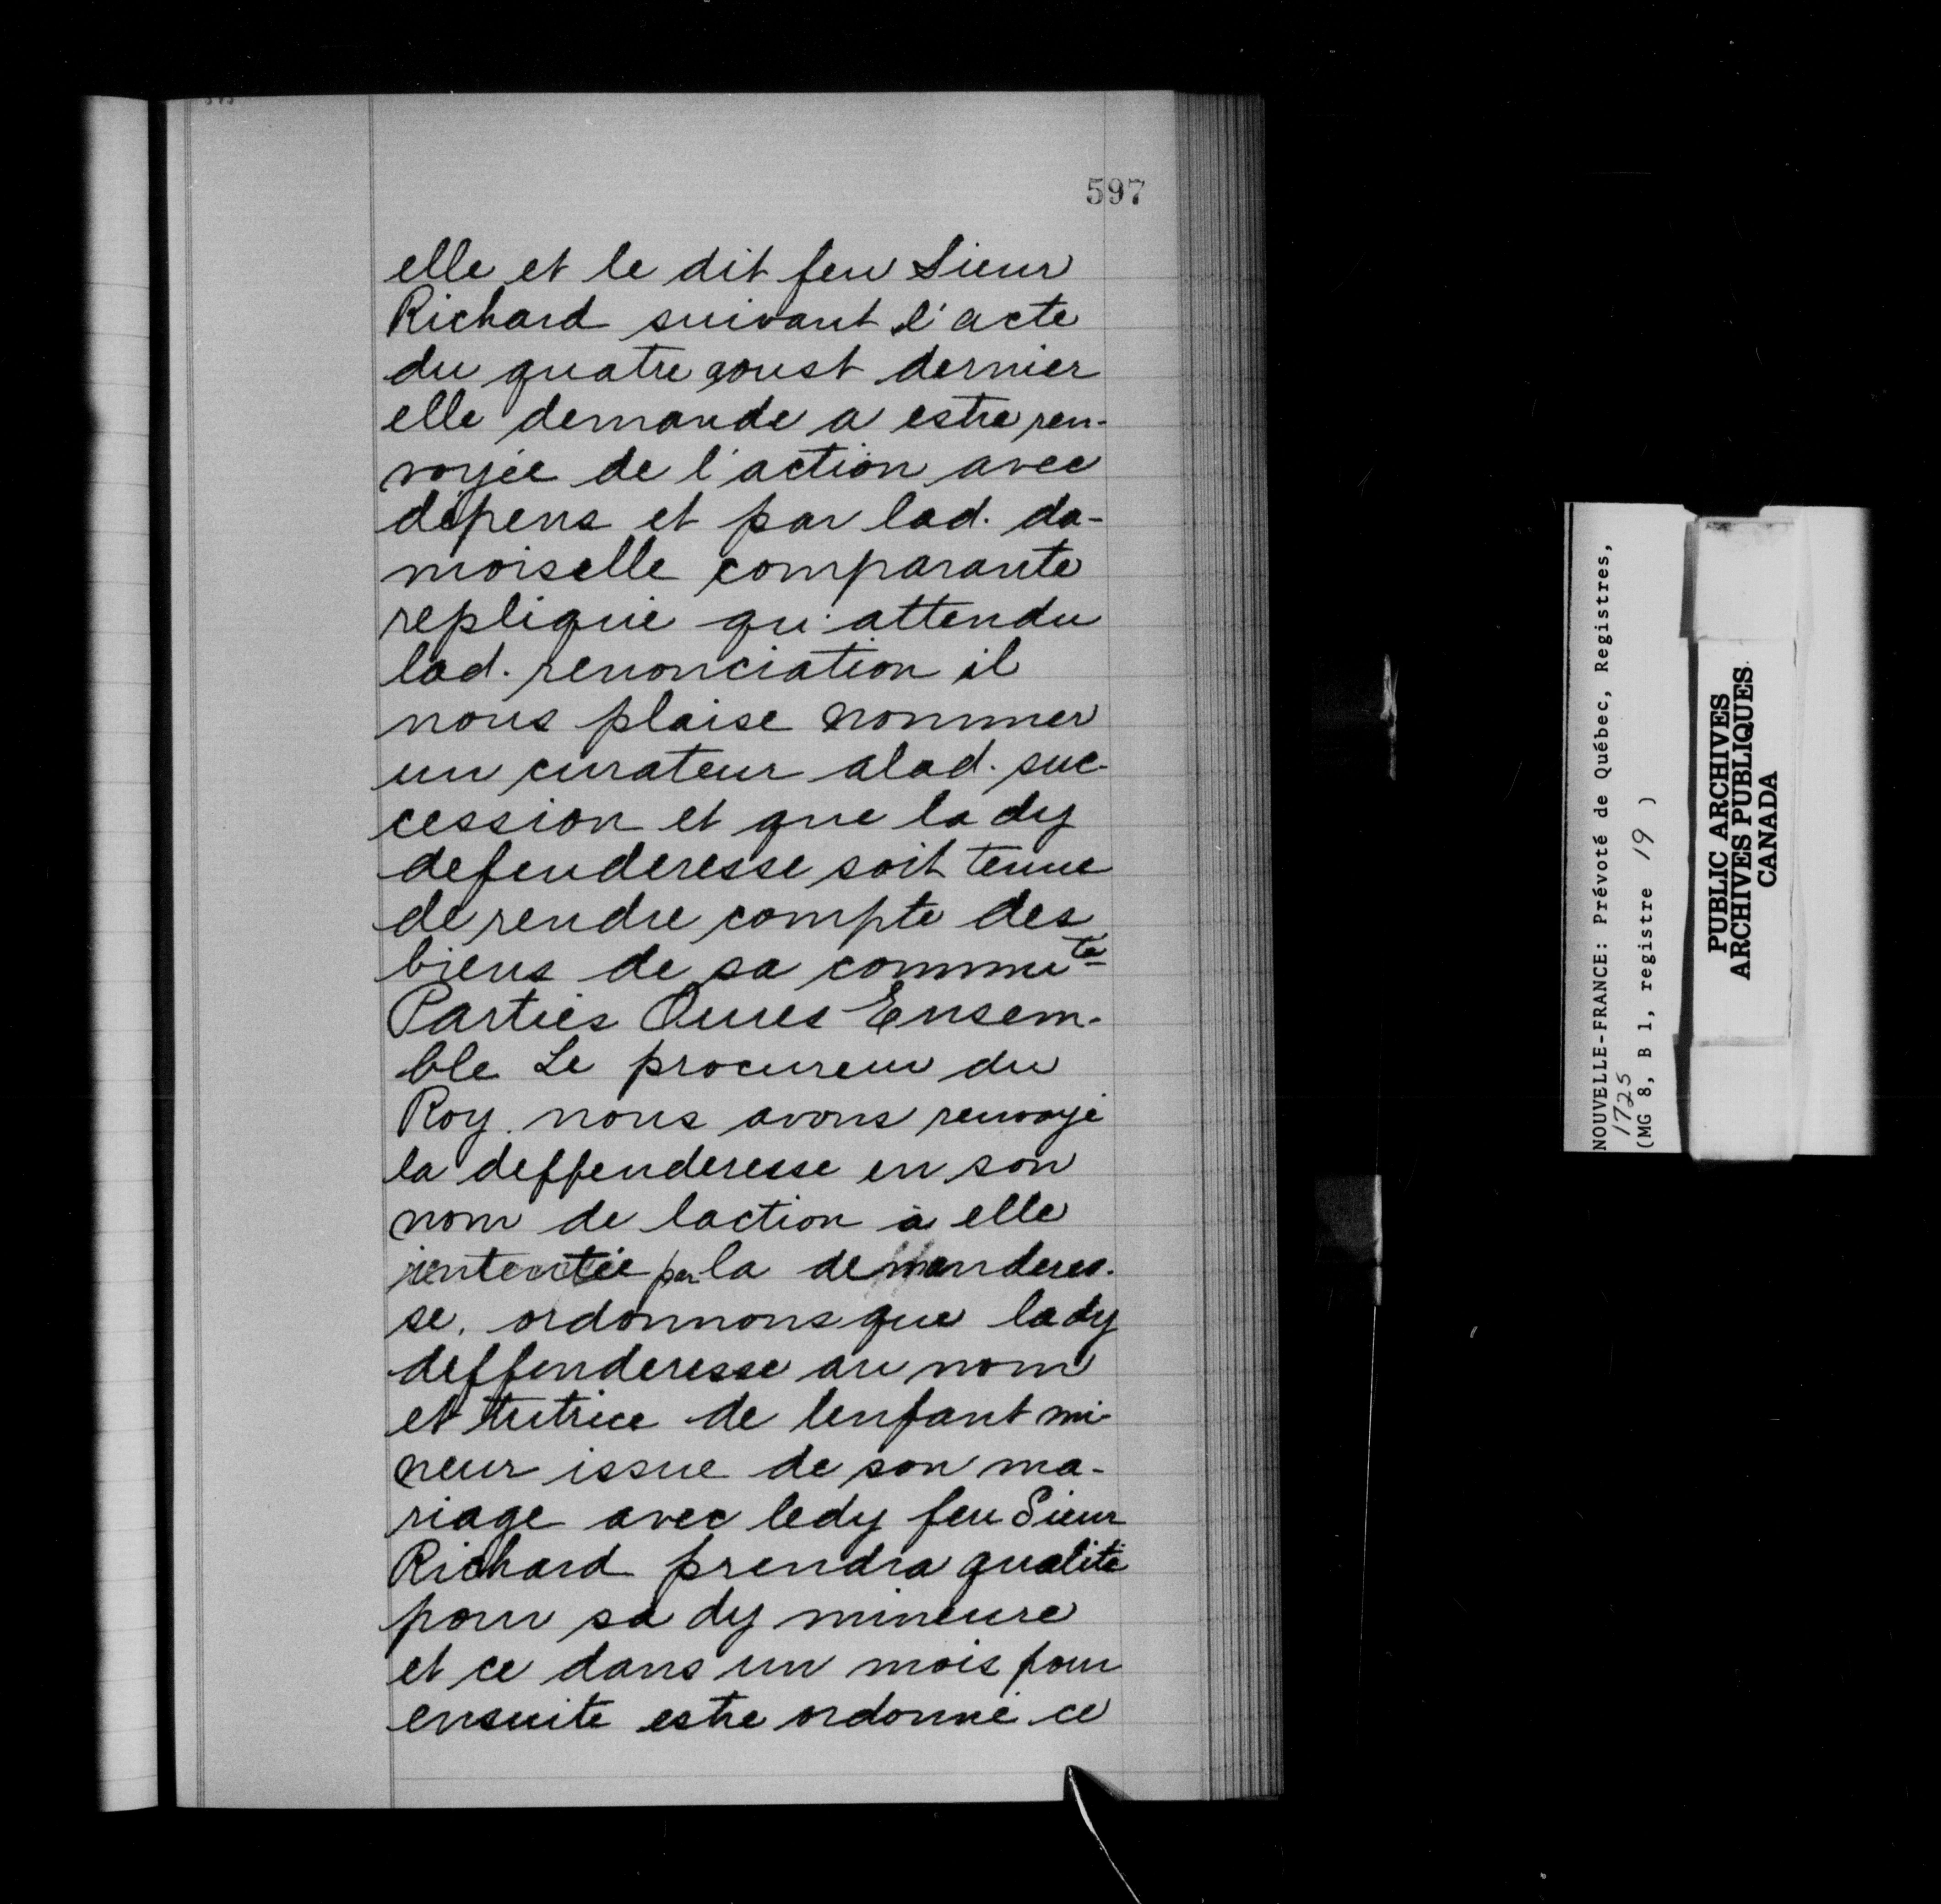 597
elle et le dit feu Sieur
Richard suivant l'acte
du quatre aoust dernier
elle demande a estre ren-
voyée de l'action avec
dépens et par lad. da-
moiselle comparante
repliqué qu'attendu
lad. renonciation il
nous plaise nommer
un curateur alad. suc-
cession et que la dy
defenderesse soit tenue
de rendre compte des
biens de sa commu^te
Parties Ouies Ensem-
ble Le procureur du
Roy. nous avons renvoyé
la deffenderesse en son
nom de laction à elle
intentée par la demanderes-
se. ordonnons que lady
deffenderesse au nom
et tutrice de lenfant mi-
neur issue de son ma-
riage avec ledy feu Sieur
Richard prendra qualité
pour sa dy mineure
et ce dans un mois pour
ensuite estre ordonné ce
NOUVELLE-FRANCE: Prévoté de Québec, Registres,
1725
(MG 8, B 1, registre 19 )
PUBLIC ARCHIVES
ARCHIVES PUBLIQUES
CANADA